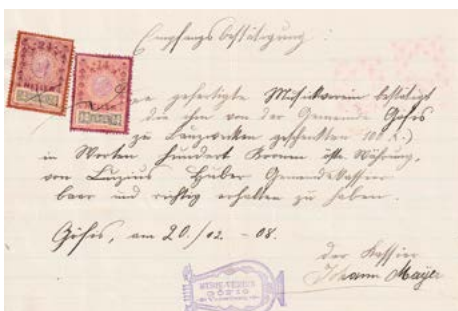 Empfangsbestätigung:
Der gefertigte Musikverein bestätigt
die ihm von der Gemeinde Göfis
zu Bauzwecken geschenkten 100 K.)
in Worten Hundert Kronen östr. Währung,
von Luzius Huber Gemeindekassier
baar und richtig erhalten zu haben.
Göfis, am 20./02. - 08.
Der Kassier
Johann Mayer
MUSIK-VEREIN
GÖFIS